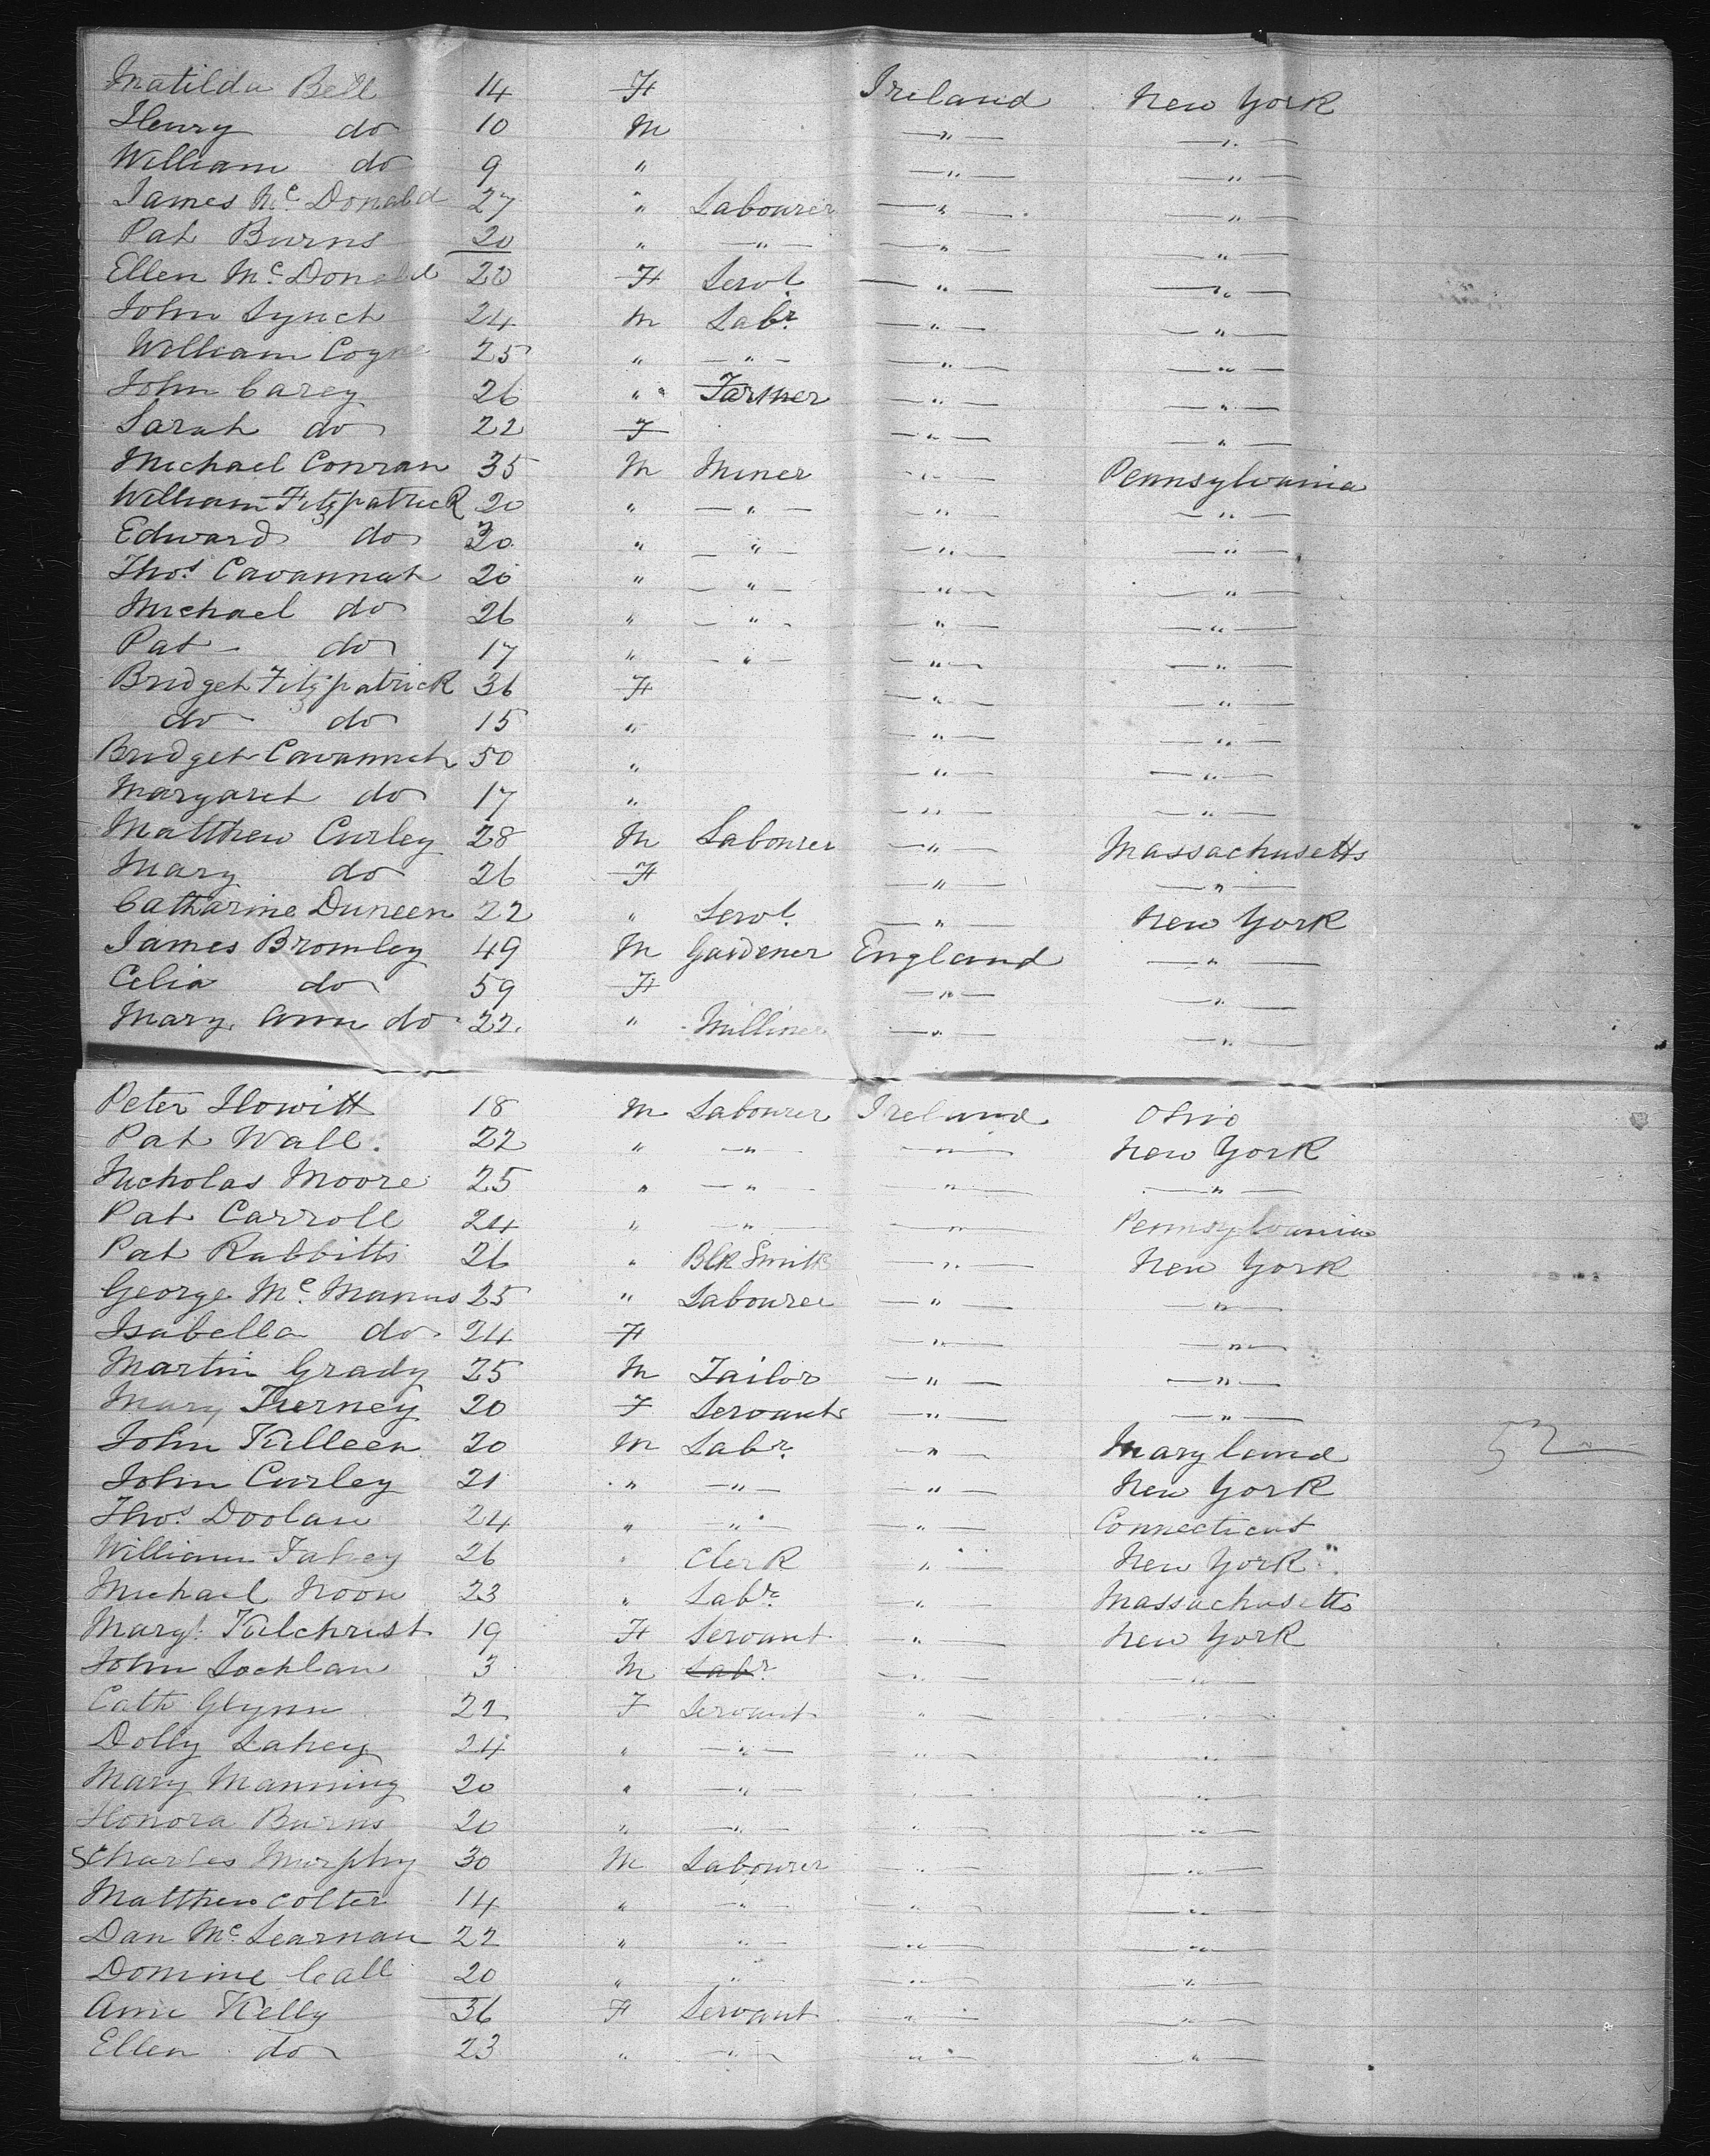 Matilda Bell 14 F Ireland New York
Henry do 10 M —"— —"—
William do 9 " —"— —"—
James Mc Donald 27 " Labourer —"— —"—
Pat Burns 20 " —"— —"— —"—
Ellen Mc Donald 20 F Servt —"— —"—
John Lynch 24 M Labr —"— —"—
William Cogne 25 " —"— —"— —"—
John Carey 26 " Farmer —"— —"—
Sarah do 22 F —"— —"—
Michael Conran 35 M Miner —"— Pennsylvania
William Fitzpatrick 20 " —"— —"— —"—
Edward do 30 " —"— —"— —"—
Thos Cavannah 20 " —"— —"— —"—
Michael do 26 " —"— —"— —"—
Pat do 17 " —"— —"— —"—
Bridget Fitzpatrick 36 F —"— —"—
do do 15 " —"— —"—
Bridget Cavannah 50 " —"— —"—
Margaret do 17 " —"— —"—
Matthew Curley 28 M Labourer —"— Massachusetts
Mary do 26 F —"— —"—
Catharine Duneen 22 " Servt —"— New York
James Bromley 49 M Gardener England —"—
Celia do 59 F —"— —"—
Mary Ann do 22 " Milliner —"— —"—
Peter Howitt 18 M Labourer Ireland Ohio
Pat Wall 22 " —"— —"— New York
Nicholas Moore 25 " —"— —"— —"—
Pat Carroll 24 " —"— —"— Pennsylvania
Pat Rabbitts 26 " Blk Smith —"— New York
George Mc Manus 25 " Labourer —"— —"—
Isabella do 24 F —"— —"—
Martin Grady 25 M Tailor —"— —"—
Mary Tierney 20 F Servants —"— —"—
John Killeen 20 M Labr —"— Maryland 52
John Curley 21 " —"— —"— New York
Thos Doolan 24 " —"— —"— Connecticut
William Fahey 26 " Clerk —"— New York
Michael Noon 23 " Labr —"— Massachusetts
Margt Kilchrist 19 F Servant —"— New York
John Lochlan 3 M Labr —"— —"—
Cath Glynn 22 F Servant " —"—
Dolly Lahey 24 " —"— —"— —"—
Mary Manning 20 " —"— " —"—
Honora Burns 20 " —"— " —"—
Charles Murphy 30 M Labourer —"— —"—
Matthew Colter 14 " —"— —"— —"—
Dan Mc Learnan 22 " —"— —"— —"—
Domine Call 20 " " —"— —"—
Ann Kelly 36 F Servant —"— —"—
Ellen do 23 " —"— —"— —"—